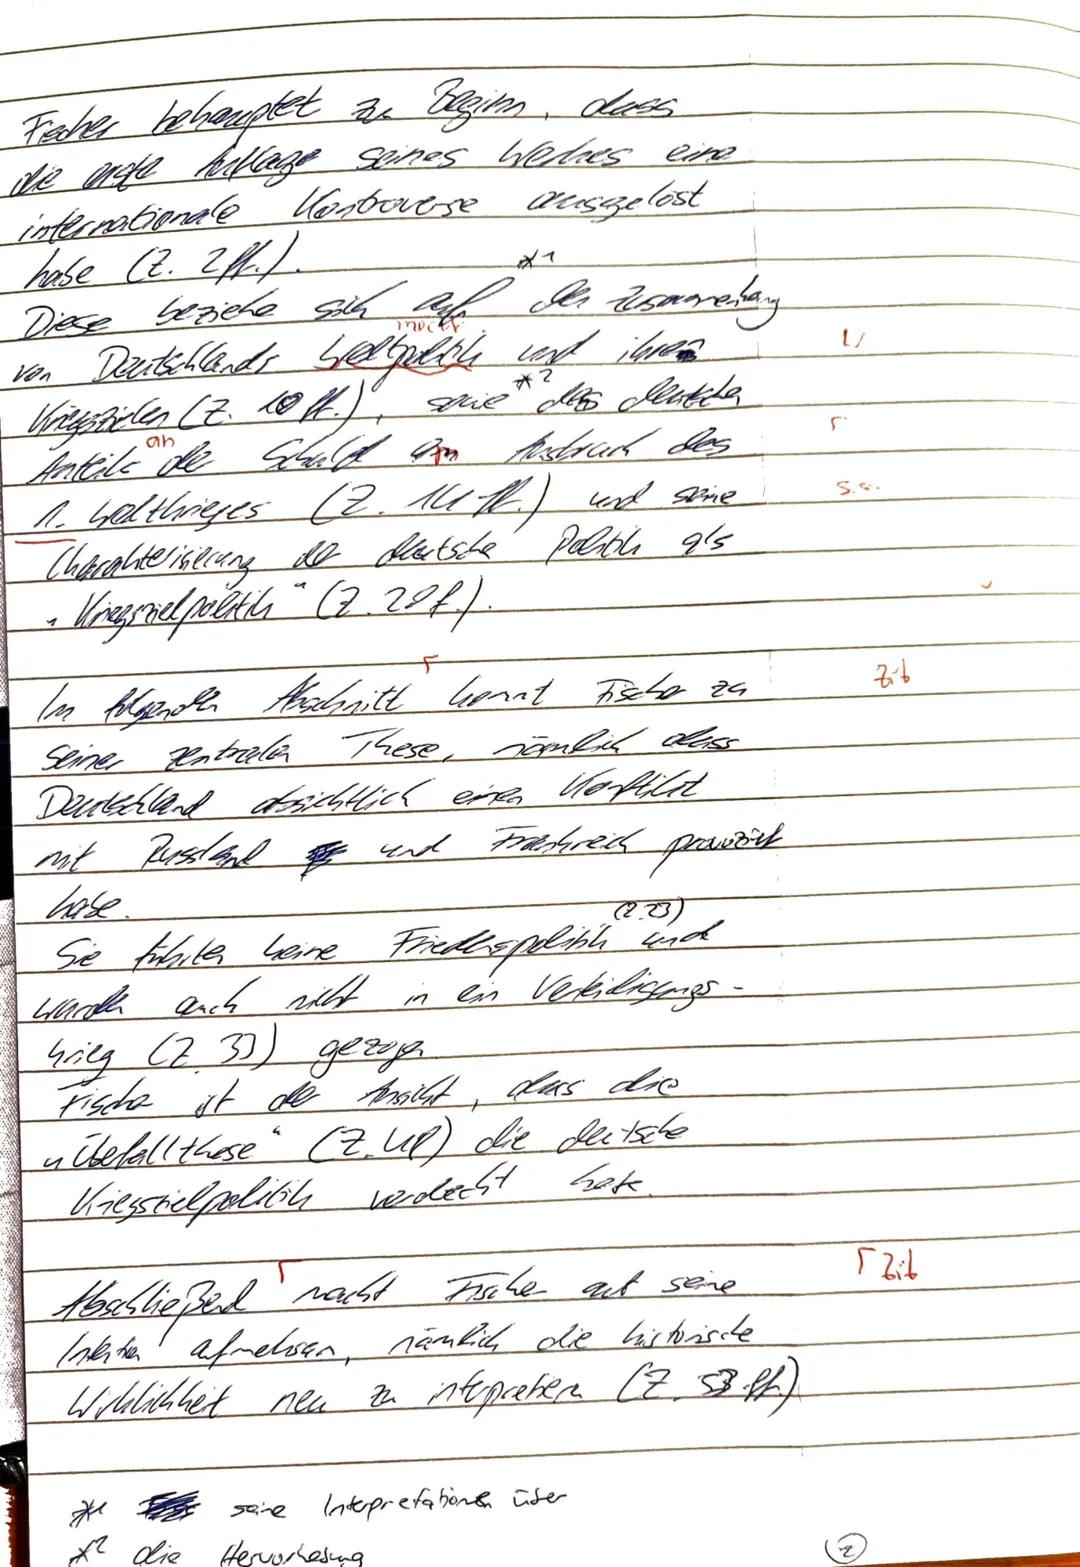 Fischer behauptet zu Beginn, dass
die erste Auflage seines Werkes eine
internationale Kontroverse ausgelöst
habe (Z. 2ff.).
*1
Diese beziehe sich auf den Zusammenhang
macht
von Deutschlands Weltpolitik und ihren
*2
Kriegszielen (Z. 10 ff.), sowie des deutschen
an
Anteils der Schuld am Ausbruch des
r
1. Weltkrieges (Z. 14 ff.) und seine
s.o.
Charakterisierung der deutsche Politik als
„Kriegszielpolitik" (Z. 20f.).
Im folgenden Abschnitt kommt Fischer zu
Zit
seiner zentralen These, nämlich dass
Deutschland absichtlich einen Konflikt
mit Russland und Frankreich provoziert
habe.
(Z. 23)
Sie führten keine Friedenspolitik und
wurden auch nicht in ein Verteidigungs-
krieg (Z. 33) gezogen
Fischer ist der Ansicht, dass die
„Überfallthese" die deutsche
Kriegszielpolitik verdeckt habe.
Abschließend macht Fischer auf seine
Γ Zit
Intention aufmerksam, nämlich die historische
Wirklichkeit neu zu intepretieren (Z. 53 ff.)
*1 seine Interpretationen über
*2 die Hervorhebung
2